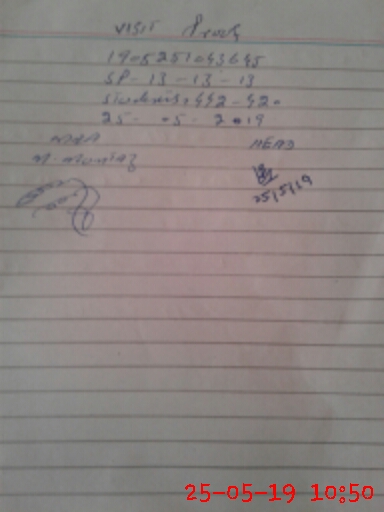 VISIT Proof
1905251043645
SP-13-13-13
students, 442-420
25-05-2019
HEAD
M.
25/5/19
25-05-19 10:50